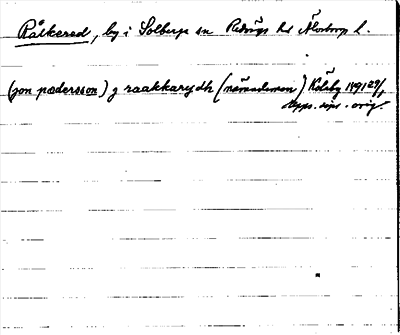 Råkkered, by i Solberga sn Redvägs hd Älvsborgs l.
(jon pædersson) j raakkarydh (nämndeman) Kölaby 1491 29/1
Upps. dipl. orig.